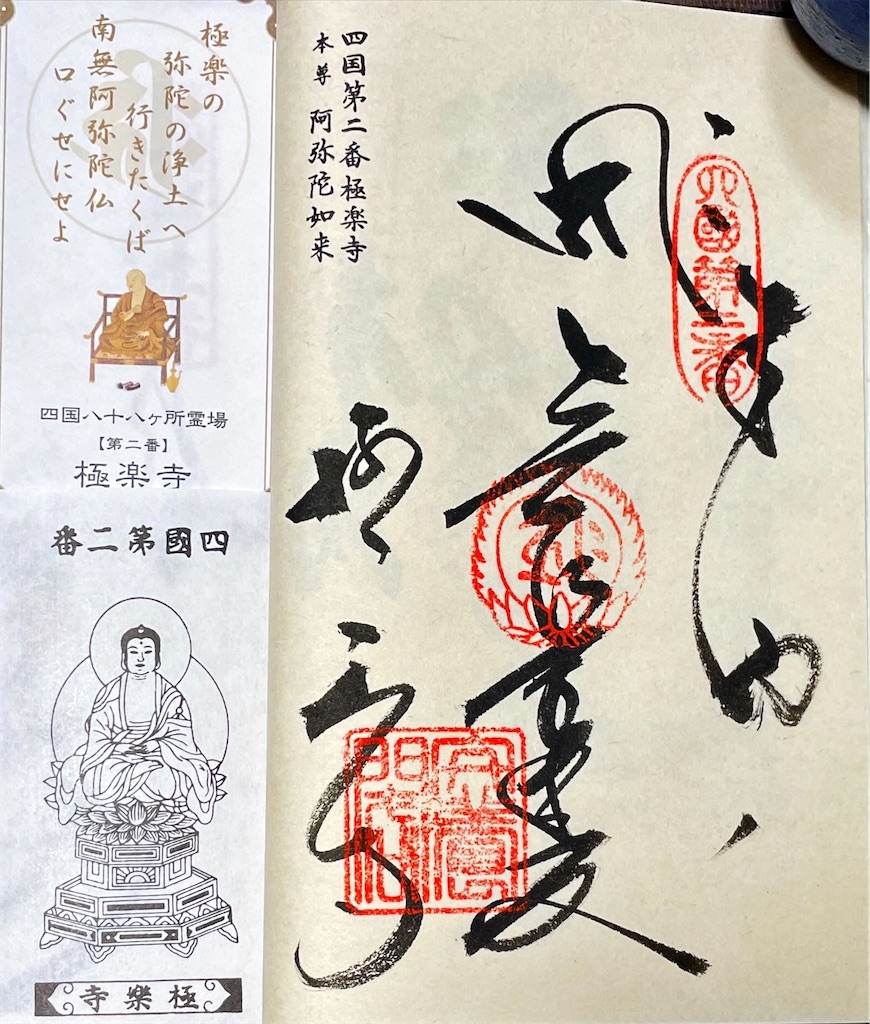 極楽の
弥陀の浄土へ
行きたくば
南無阿弥陀仏
口ぐせにせよ
四国八十八ヶ所霊場
【第二番】
極楽寺
四國第二番
極樂寺
四国第二番極楽寺
本尊 阿弥陀如来
四國第二番
奉納